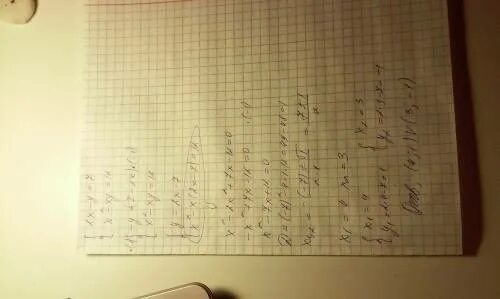 2x - y = 7
x² - xy = 12
-y = 7 - 2x |·(-1)
x² - xy = 12
y = 2x - 7
x² - x(2x - 7) = 12
x² - 2x² + 7x - 12 = 0
-x² + 7x - 12 = 0 |·(-1)
x² - 7x + 12 = 0
D = (-7)² - 4·1·12 = 49 - 48 = 1
x₁,₂ = (-(-7) ± √1) / 2·1 = (7 ± 1) / 2
x₁ = 4 x₂ = 3
x₁ = 4 x₂ = 3
y₁ = 2·4 - 7 = 1 y₂ = 2·3 - 7 = -1
(4; 1) (3; -1)